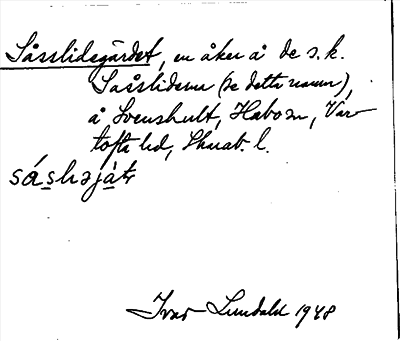 Såsslidegärdet, en åker å de s.k.
Saåsliderna (se detta namn),
å Svenshult, Habo sn, Var-
tofta hd, Skarab. l.
Ivar Lundahl 1948